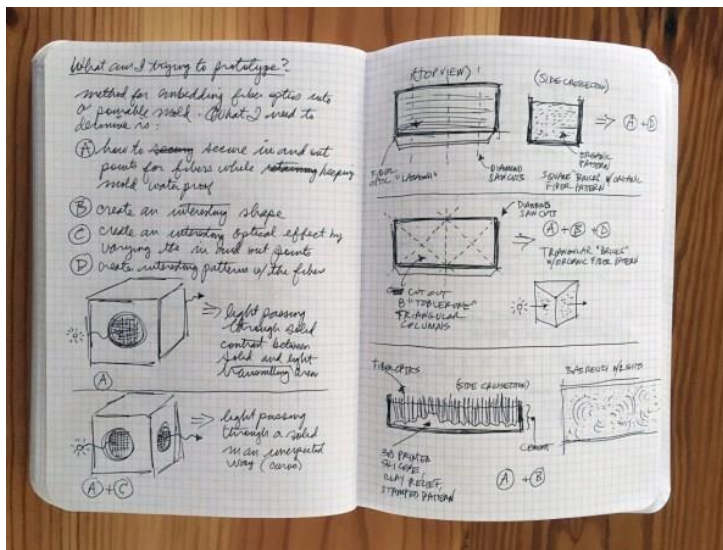 What am I trying to prototype?
method for embedding fiber optics into
a pourable mold. What I need to
determine is:
A how to secure in and out
points for fibers while keeping
mold water proof
B create an interesting shape
C create an interesting optical effect by
varying its in and out points
D create interesting patterns w/ the fiber
⇒ light passing
through solid
contrast between
solid and light
transmitting area
A
⇒ light passing
through a solid
in an unexpected
way (curve)
A + C
(TOP VIEW)
FIBER
OPTIC "LASAGNA"
DIAMOND
SAW CUTS
(SIDE CROSSECTION)
⇒ A + D
ORGANIC
PATTERN
SQUARE BRICK W/ ORGANIC
FIBER PATTERN
DIAMOND
SAW CUTS
⇒ A + B + D
TRIANGULAR "BRICKS"
W/ ORGANIC FIBER PATTERN
CUT OUT
8 "TOBLERONE"
TRIANGULAR
COLUMNS
FIBER OPTICS
(SIDE CROSSECTION)
CEMENT
3D PRINTED
SILICONE,
CLAY RELIEF,
STAMPED PATTERN
A + B
BAS RELIEF W/